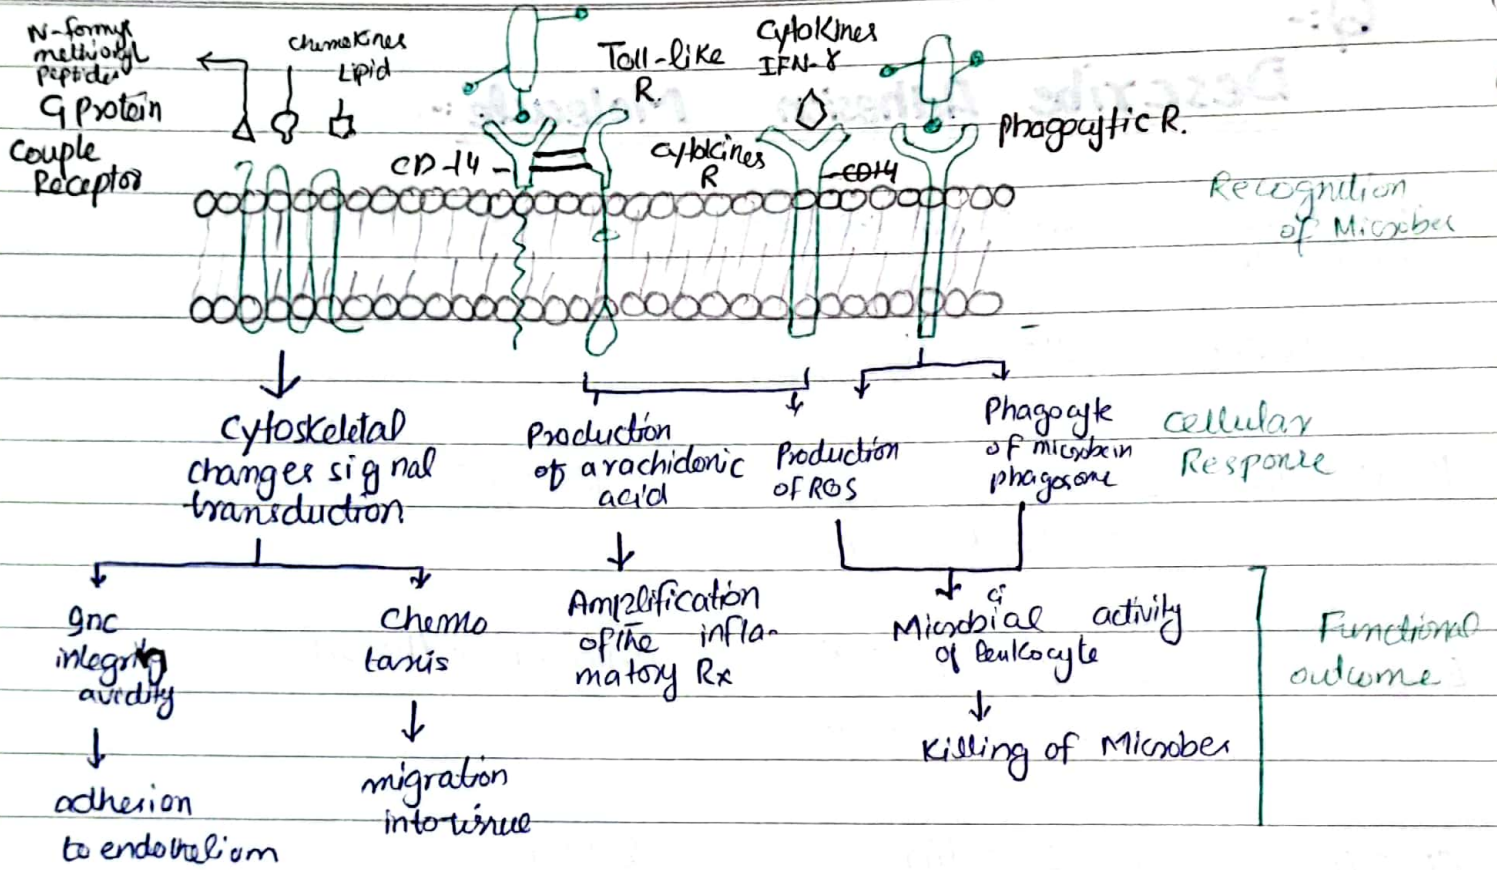 N-formyl
methionyl
peptides
G Protein
Couple
Receptor
chemokines
Lipid
CD-14
Toll-like
R.
Cytokines
IFN-γ
cytokines
R
CD14
Phagocytic R.
Recognition
of Microbes
Cytoskeletal
changes signal
transduction
Production
of arachidonic
acid
Production
of ROS
Phagocyte
of microbe in
phagosome
Cellular
Response
Inc
integrity
avidity
Chemo
taxis
Amplification
of the infla-
matory Rx
ci
Microbial activity
of leukocyte
Functional
outcome
adhesion
to endothelium
migration
into tissue
Killing of Microbes